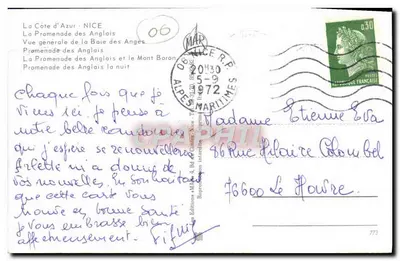 La Côte d'Azur - NICE
La Promenade des Anglais
Vue générale de la Baie des Anges
Promenade des Anglais
La Promenade des Anglais et le Mont Boron
Promenade des Anglais la nuit
06
NICE R.P.
20H30
5-9
1972
ALPES MARITIMES
0,30
Chaque fois que je
viens ici je pense à
notre belle
que j'espère se renouvellera
Arlette m'a donné de
vos nouvelles. En souhaitant
que cette carte vous
trouve en bonne santé
je vous embrasse bien
affectueusement.
Madame Etienne Eva
86 Rue Hilaire Colombel
76600 Le Havre